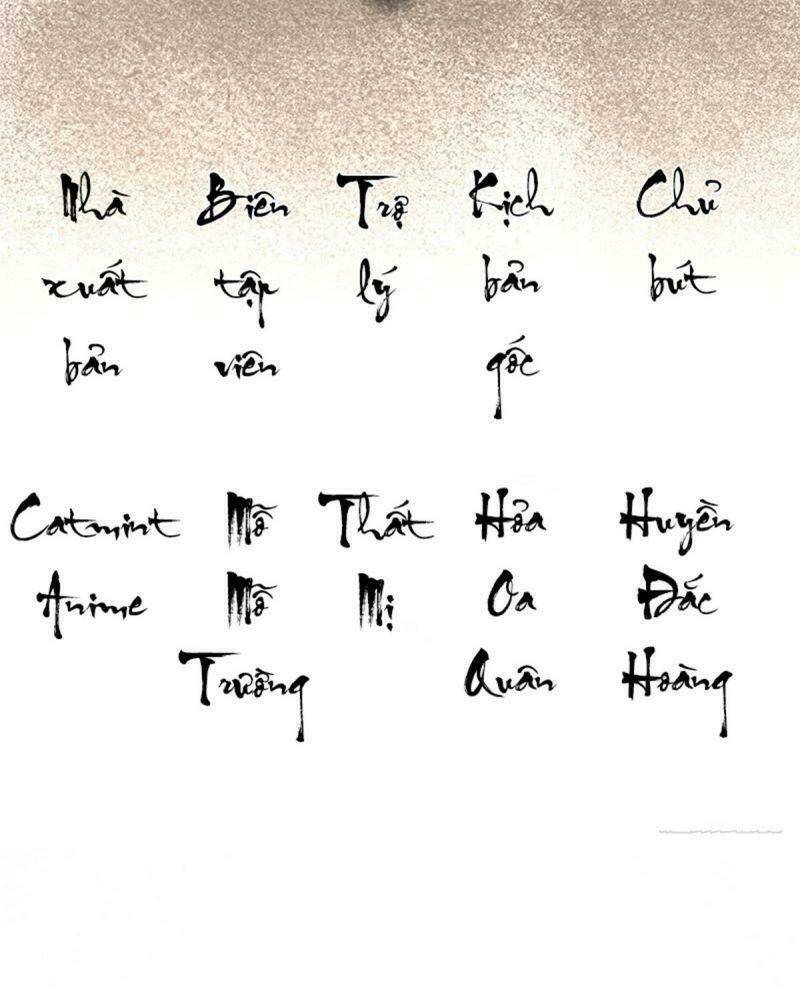 Nhà xuất bản
Biên tập viên
Trợ lý
Kịch bản gốc
Chủ bút
Catmint Anime
Mỗ Mỗ Trường
Thất Mị
Hỏa Oa Quân
Huyền Đắc Hoàng